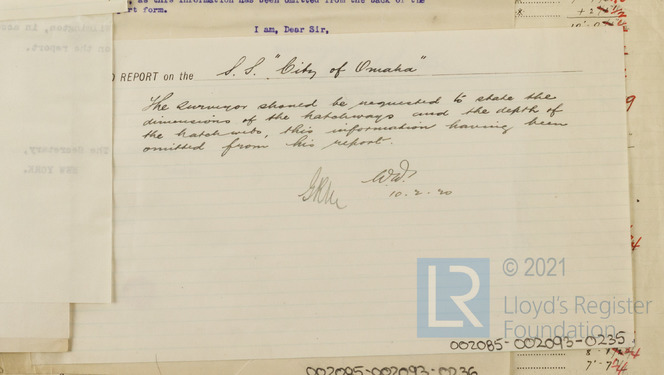 as this information has been omitted from the back of the
rt form.
I am, Dear Sir,
REPORT on the S.S. "City of Omaha"
The Surveyor should be requested to state the
dimensions of the hatchways and the depth of
the hatch webs, this information having been
omitted from his report.
10.2.20
The Secretary,
NEW YORK.
on the report.
LR
© 2021
Lloyd's Register
Foundation
002085-002093-0235
002085-002093-0236